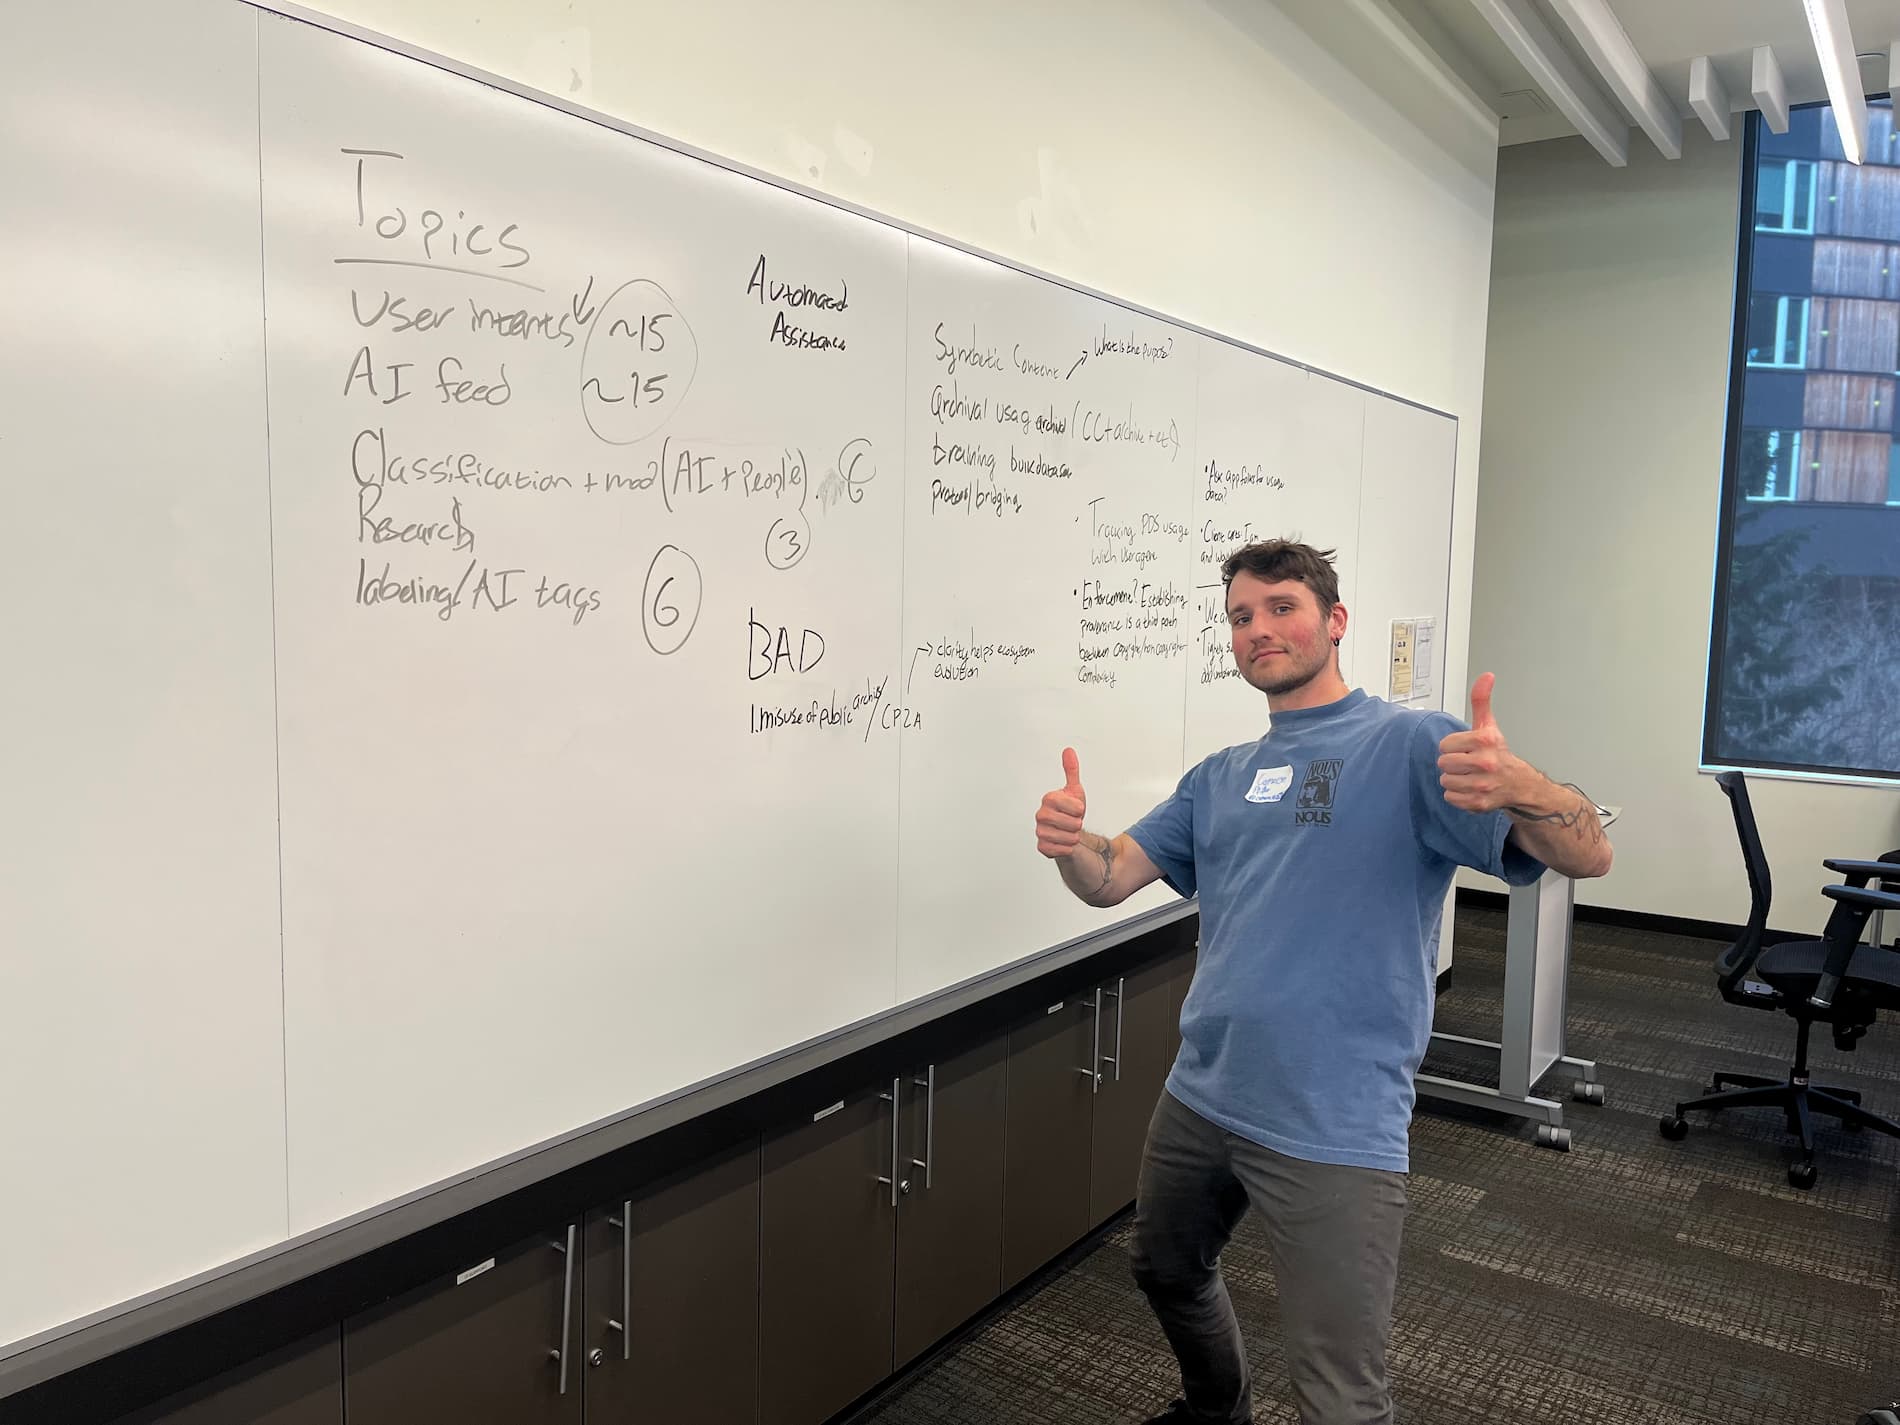 Topics
User intents ~15
AI feed ~15
Classification + mod (AI + People). 6
Research 3
labeling/AI tags 6
Automated
Assistance
BAD
1. misuse of public archive/CP2A
→ clarity helps ecosystem
evolution
Synthetic Content → What is the purpose?
archival usag archival (CC + archive + etc)
training bulk data
protocol/bridging
• Tracking PDS usage
with user agent
• Enforcement? Establishing
provenance is a third path
between copyright/non copyright
Complexity
• Ask app for usage
data?
• Client
and
• We
• Tightly
NOUS
NOUS